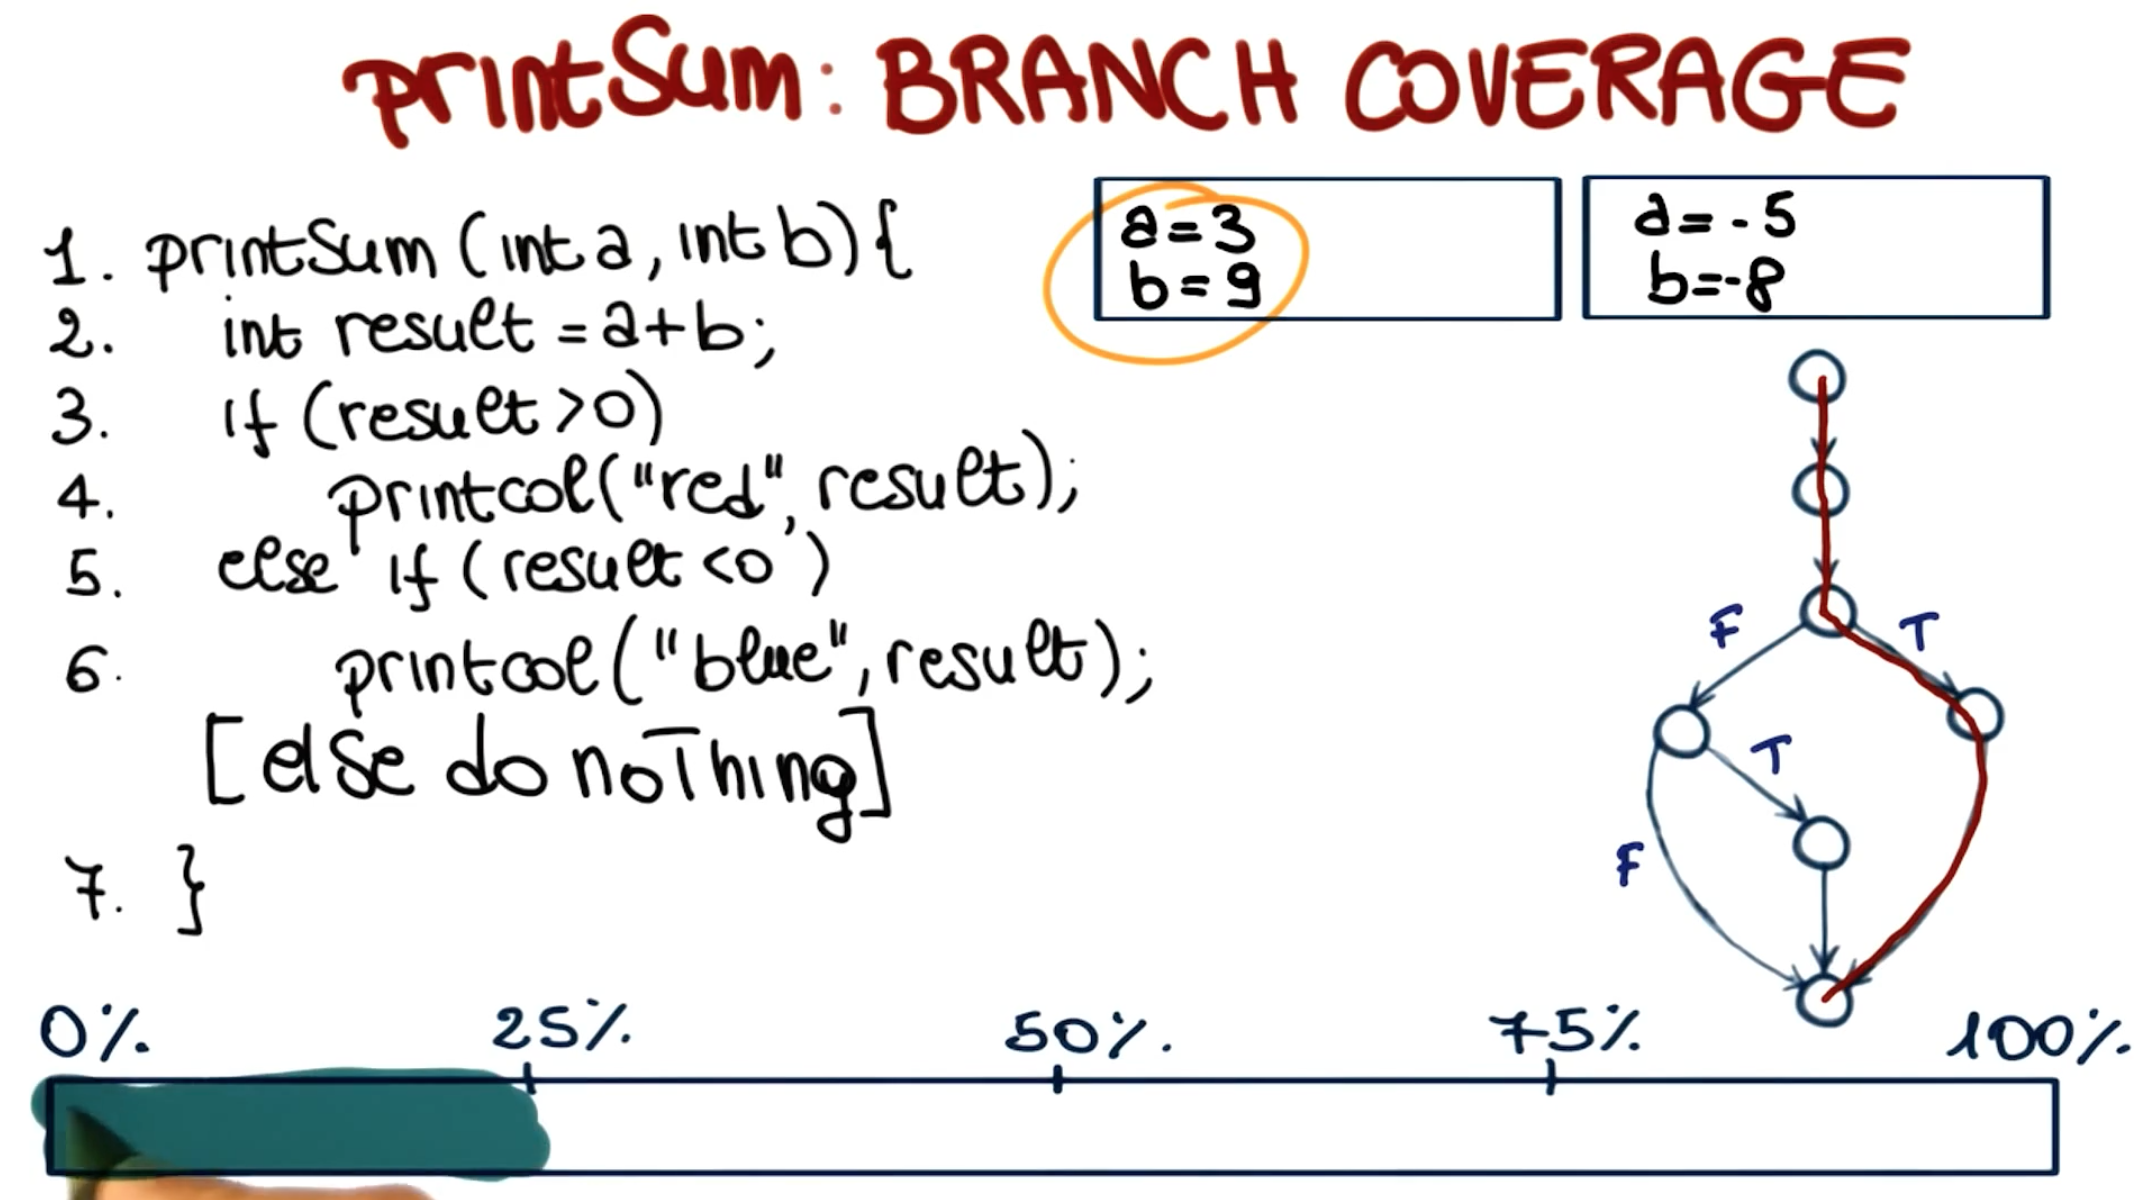 printSum: BRANCH COVERAGE
a=3
b=9
a=-5
b=-8
1. printSum (int a, int b) {
2. int result = a+b;
3. if (result >0)
4. printcol("red", result);
5. else if (result <0 )
6. printcol("blue", result);
[else do noThing]
7. }
F
T
T
F
0% 25% 50% 75% 100%